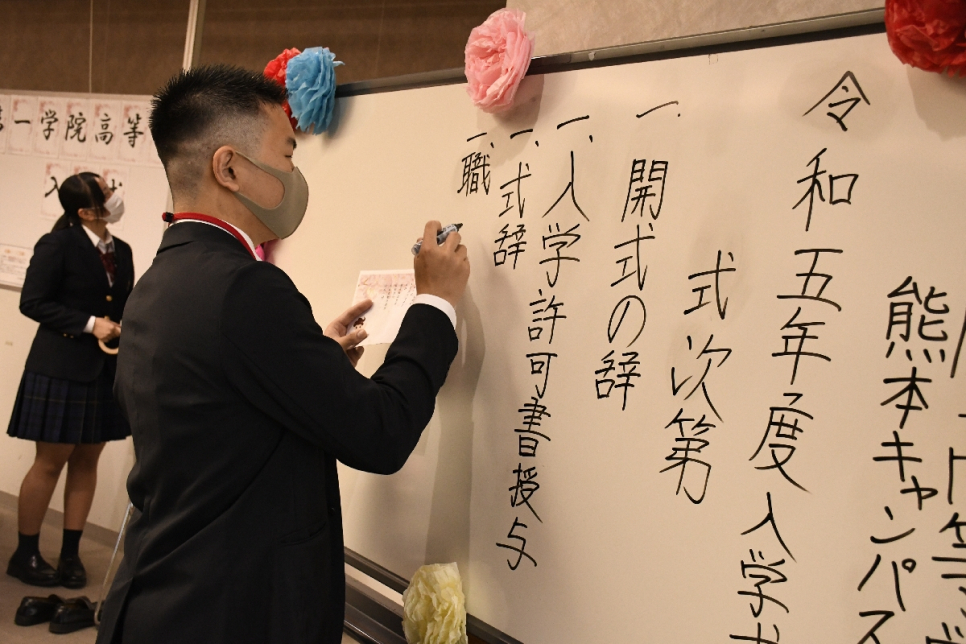 熊本キャンパス
令和五年度入学式
式次第
一、開式の辞
一、入学許可書授与
一、式辞
一、職
第一学院高等